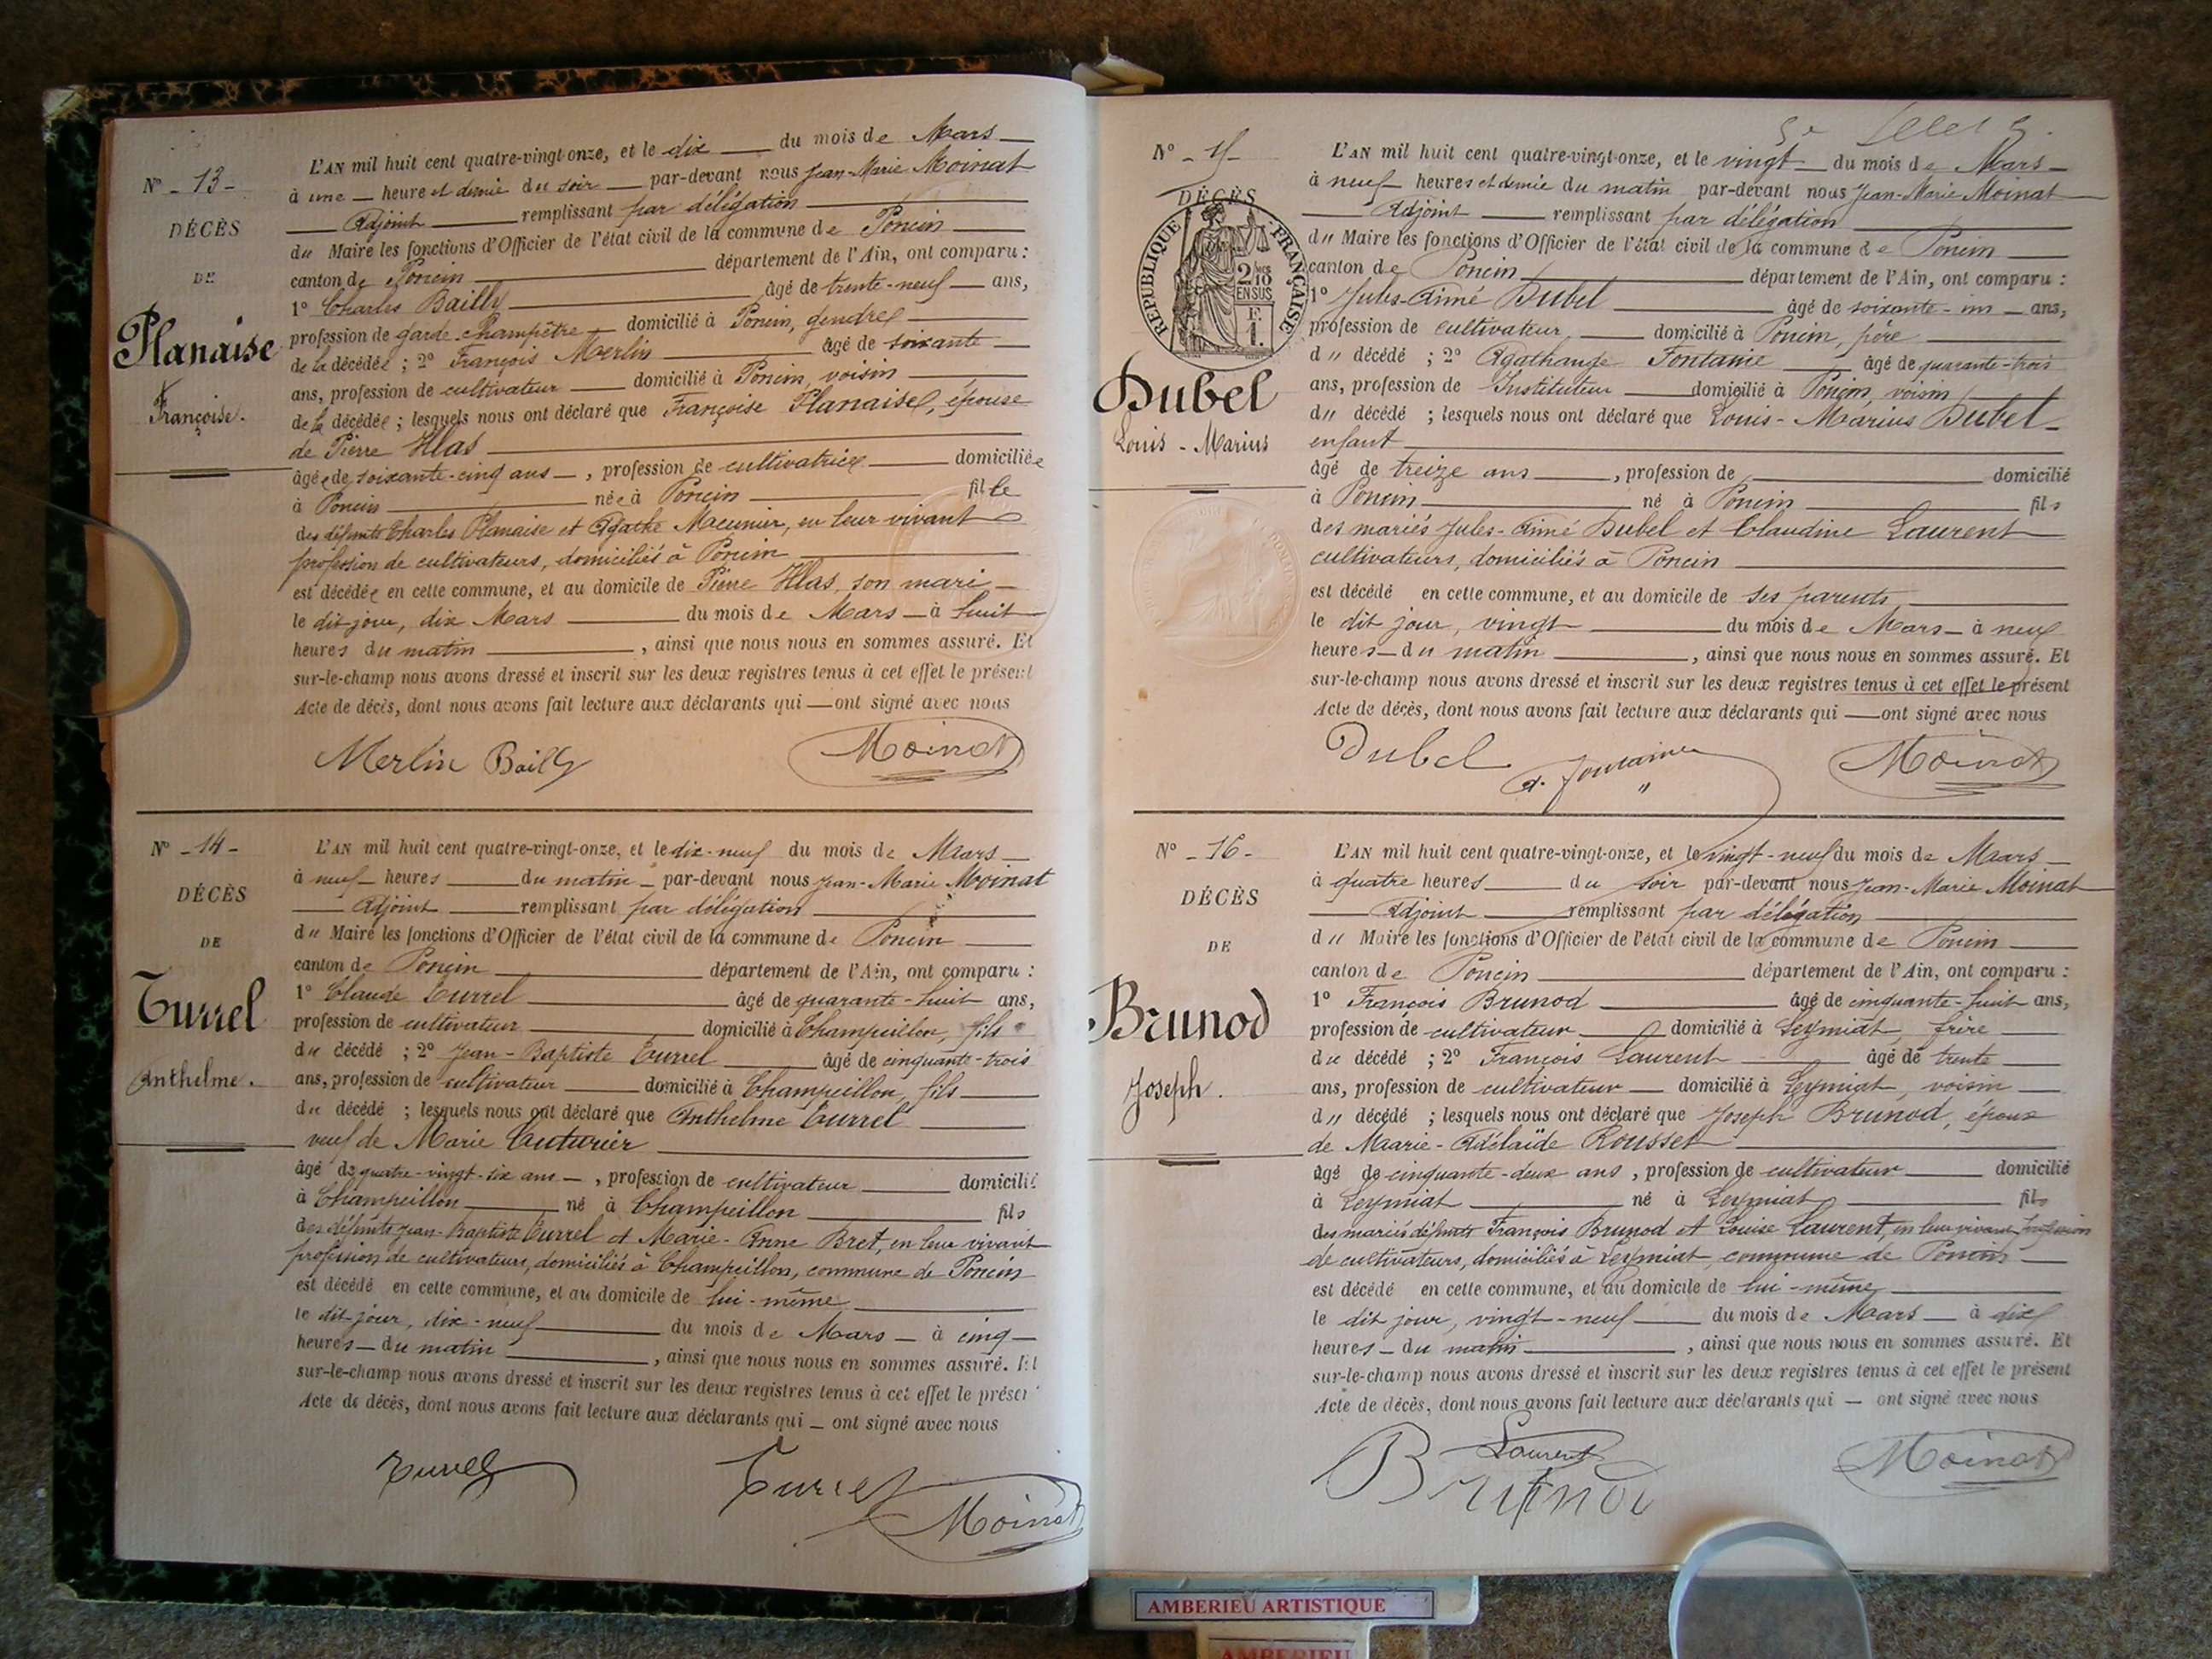 N° - 13 -
DÉCÈS
DE
Planaise
Françoise.
L'AN mil huit cent quatre-vingt-onze, et le dix du mois de Mars
à une heure et demie du soir par-devant nous Jean-Marie Moinat
Adjoint remplissant par délégation
du Maire les fonctions d'Officier de l'état civil de la commune de Poncin
canton de Poncin département de l'Ain, ont comparu :
1° Charles Bailly âgé de trente-neuf ans,
profession de garde-champêtre domicilié à Poncin, gendre
de la décédée ; 2° François Merlin âgé de soixante
ans, profession de cultivateur domicilié à Poncin, voisin
de la décédée ; lesquels nous ont déclaré que Françoise Planaise, épouse
de Pierre Hlas
âgée de soixante-cinq ans, profession de cultivatrice domiciliée
à Poncin née à Poncin fille
des défunts Charles Planaise et Agathe Meunier, en leur vivant
profession de cultivateurs, domiciliés à Poncin
est décédée en cette commune, et au domicile de Pierre Hlas, son mari
le dit jour, dix Mars du mois de Mars à huit
heures du matin, ainsi que nous nous en sommes assuré. Et
sur-le-champ nous avons dressé et inscrit sur les deux registres tenus à cet effet le présent
Acte de décès, dont nous avons fait lecture aux déclarants qui ont signé avec nous
Merlin Bailly Moinat
N° - 14 -
DÉCÈS
DE
Turrel
Anthelme.
L'AN mil huit cent quatre-vingt-onze, et le dix-neuf du mois de Mars
à neuf heures du matin par-devant nous Jean-Marie Moinat
Adjoint remplissant par délégation
du Maire les fonctions d'Officier de l'état civil de la commune de Poncin
canton de Poncin département de l'Ain, ont comparu :
1° Claude Turrel âgé de quarante-huit ans,
profession de cultivateur domicilié à Champeillon, fils
du décédé ; 2° Jean-Baptiste Turrel âgé de cinquante-trois
ans, profession de cultivateur domicilié à Champeillon, fils
du décédé ; lesquels nous ont déclaré que Anthelme Turrel
veuf de Marie Cuturier
âgé de quatre-vingt-six ans, profession de cultivateur domicilié
à Champeillon né à Champeillon fils
des défunts Jean-Baptiste Turrel et Marie-Anne Bret, en leur vivant
profession de cultivateurs, domiciliés à Champeillon, commune de Poncin
est décédé en cette commune, et au domicile de lui-même
le dit jour, dix-neuf du mois de Mars à cinq
heures du matin, ainsi que nous nous en sommes assuré. Et
sur-le-champ nous avons dressé et inscrit sur les deux registres tenus à cet effet le présent
Acte de décès, dont nous avons fait lecture aux déclarants qui ont signé avec nous
Turrel Turrel
Moinat
N° - 15 -
DÉCÈS
RÉPUBLIQUE FRANÇAISE
2/10
EN SUS
F.
1.
Dubel
Louis-Marius
L'AN mil huit cent quatre-vingt-onze, et le vingt du mois de Mars
à neuf heures et demie du matin par-devant nous Jean-Marie Moinat
Adjoint remplissant par délégation
du Maire les fonctions d'Officier de l'état civil de la commune de Poncin
canton de Poncin département de l'Ain, ont comparu :
1° Jules-Aimé Dubel âgé de soixante-un ans,
profession de cultivateur domicilié à Poncin, père
du décédé ; 2° Agathange Fontaine âgé de quarante-trois
ans, profession de Instituteur domicilié à Poncin, voisin
du décédé ; lesquels nous ont déclaré que Louis-Marius Dubel
enfant
âgé de treize ans, profession de domicilié
à Poncin né à Poncin fils
des mariés Jules-Aimé Dubel et Claudine Laurent
cultivateurs, domiciliés à Poncin
est décédé en cette commune, et au domicile de ses parents
le dit jour, vingt du mois de Mars à neuf
heures du matin, ainsi que nous nous en sommes assuré. Et
sur-le-champ nous avons dressé et inscrit sur les deux registres tenus à cet effet le présent
Acte de décès, dont nous avons fait lecture aux déclarants qui ont signé avec nous
Dubel A. Fontaine Moinat
N° - 16 -
DÉCÈS
DE
Brunod
Joseph.
L'AN mil huit cent quatre-vingt-onze, et le vingt-neuf du mois de Mars
à quatre heures du soir par-devant nous Jean-Marie Moinat
Adjoint remplissant par délégation
du Maire les fonctions d'Officier de l'état civil de la commune de Poncin
canton de Poncin département de l'Ain, ont comparu :
1° François Brunod âgé de cinquante-huit ans,
profession de cultivateur domicilié à Leymiat, frère
du décédé ; 2° François Laurent âgé de trente
ans, profession de cultivateur domicilié à Leymiat, voisin
du décédé ; lesquels nous ont déclaré que Joseph Brunod, époux
de Marie-Adélaïde Rousset
âgé de cinquante-deux ans, profession de cultivateur domicilié
à Leymiat né à Leymiat fils
des mariés défunts François Brunod et Louise Laurent, en leur vivant profession
de cultivateurs, domiciliés à Leymiat, commune de Poncin
est décédé en cette commune, et au domicile de lui-même
le dit jour, vingt-neuf du mois de Mars à dix
heures du matin, ainsi que nous nous en sommes assuré. Et
sur-le-champ nous avons dressé et inscrit sur les deux registres tenus à cet effet le présent
Acte de décès, dont nous avons fait lecture aux déclarants qui ont signé avec nous
Laurent
Brunod Moinat
AMBERIEU ARTISTIQUE
AMBERIEU